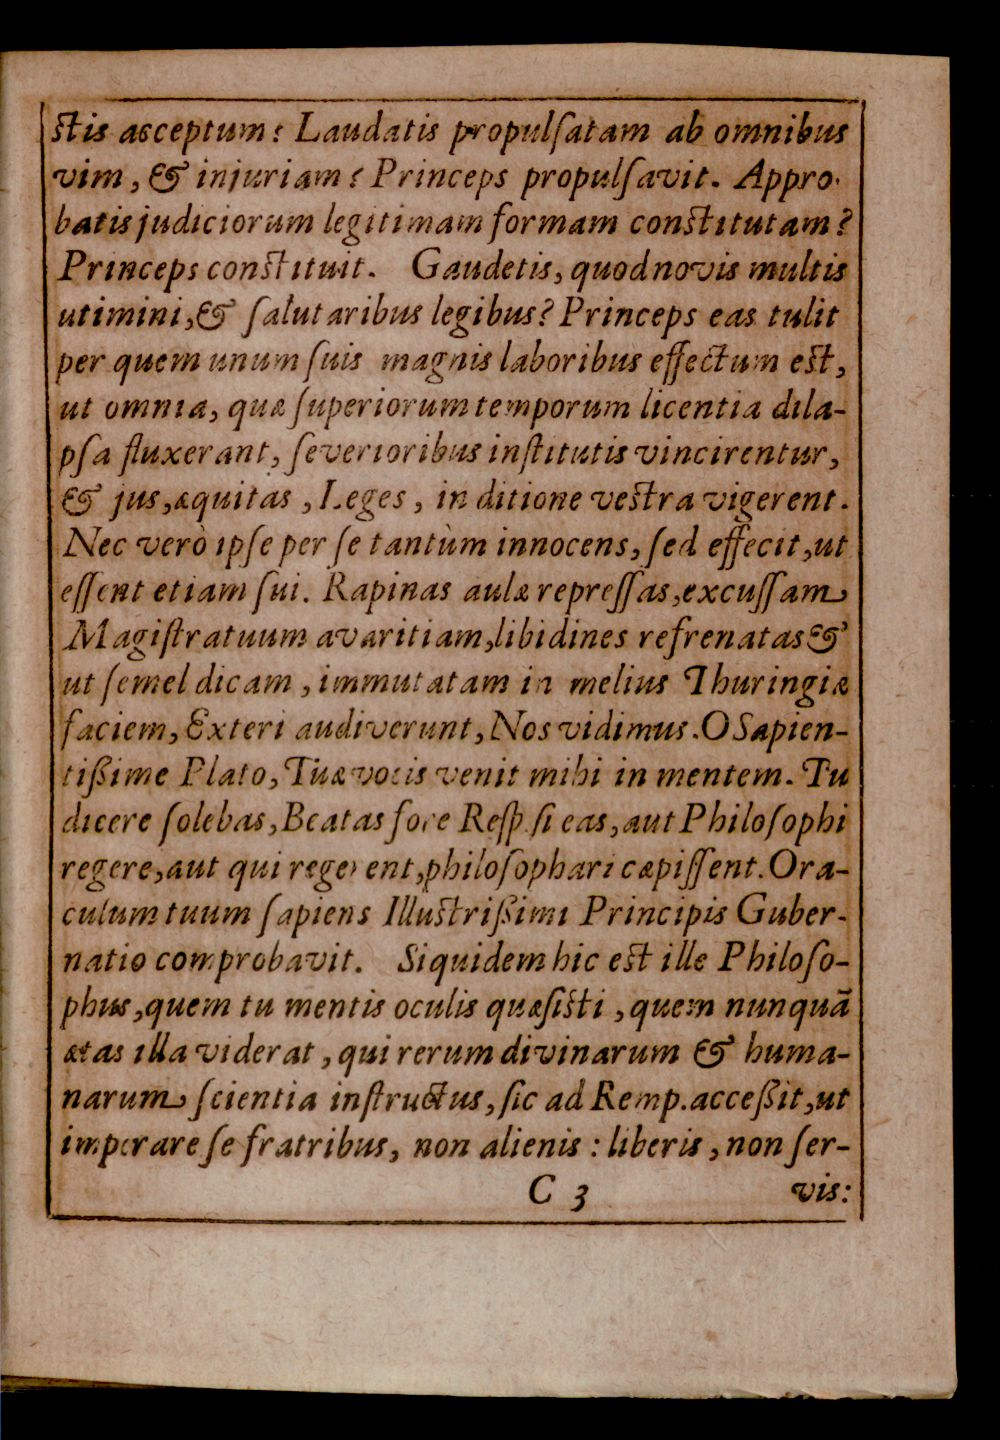 ſtis acceptum? Laudatis propulſatam ab omnibus
vim, & injuriam? Princeps propulſavit. Appro-
batis judiciorum legitimam formam conſtitutam?
Princeps conſtituit. Gaudetis, quod novis multis
utimini, & ſalutaribus legibus? Princeps eas tulit
per quem unum ſuis magnis laboribus effectum eſt,
ut omnia, quæ ſuperiorum temporum licentia dila-
pſa fluxerant, ſeverioribus inſtitutis vincirentur,
& jus, æquitas, Leges, in ditione veſtra vigerent.
Nec verò ipſe per ſe tantùm innocens, ſed effecit, ut
eſſent etiam ſui. Rapinas aulæ repreſſas, excuſſam
Magiſtratuum avaritiam, libidines refrenatas &
ut ſemel dicam, immutatam in melius Thuringiæ
faciem, Exteri audiverunt, Nos vidimus. O Sapien-
tißime Plato, Tuæ vocis venit mihi in mentem. Tu
dicere ſolebas, Beatas fore Reſp. ſi eas, aut Philoſophi
regere, aut qui regerent, philoſophari cæpiſſent. Ora-
culum tuum ſapiens Illuſtrißimi Principis Guber-
natio comprobavit. Siquidem hic eſt ille Philoſo-
phus, quem tu mentis oculis quæſiſti, quem nunquã
ætas illa viderat, qui rerum divinarum & huma-
narum ſcientia inſtructus, ſic ad Remp. acceßit, ut
imperare ſe fratribus, non alienis: liberis, non ſer-
C 3 vis: